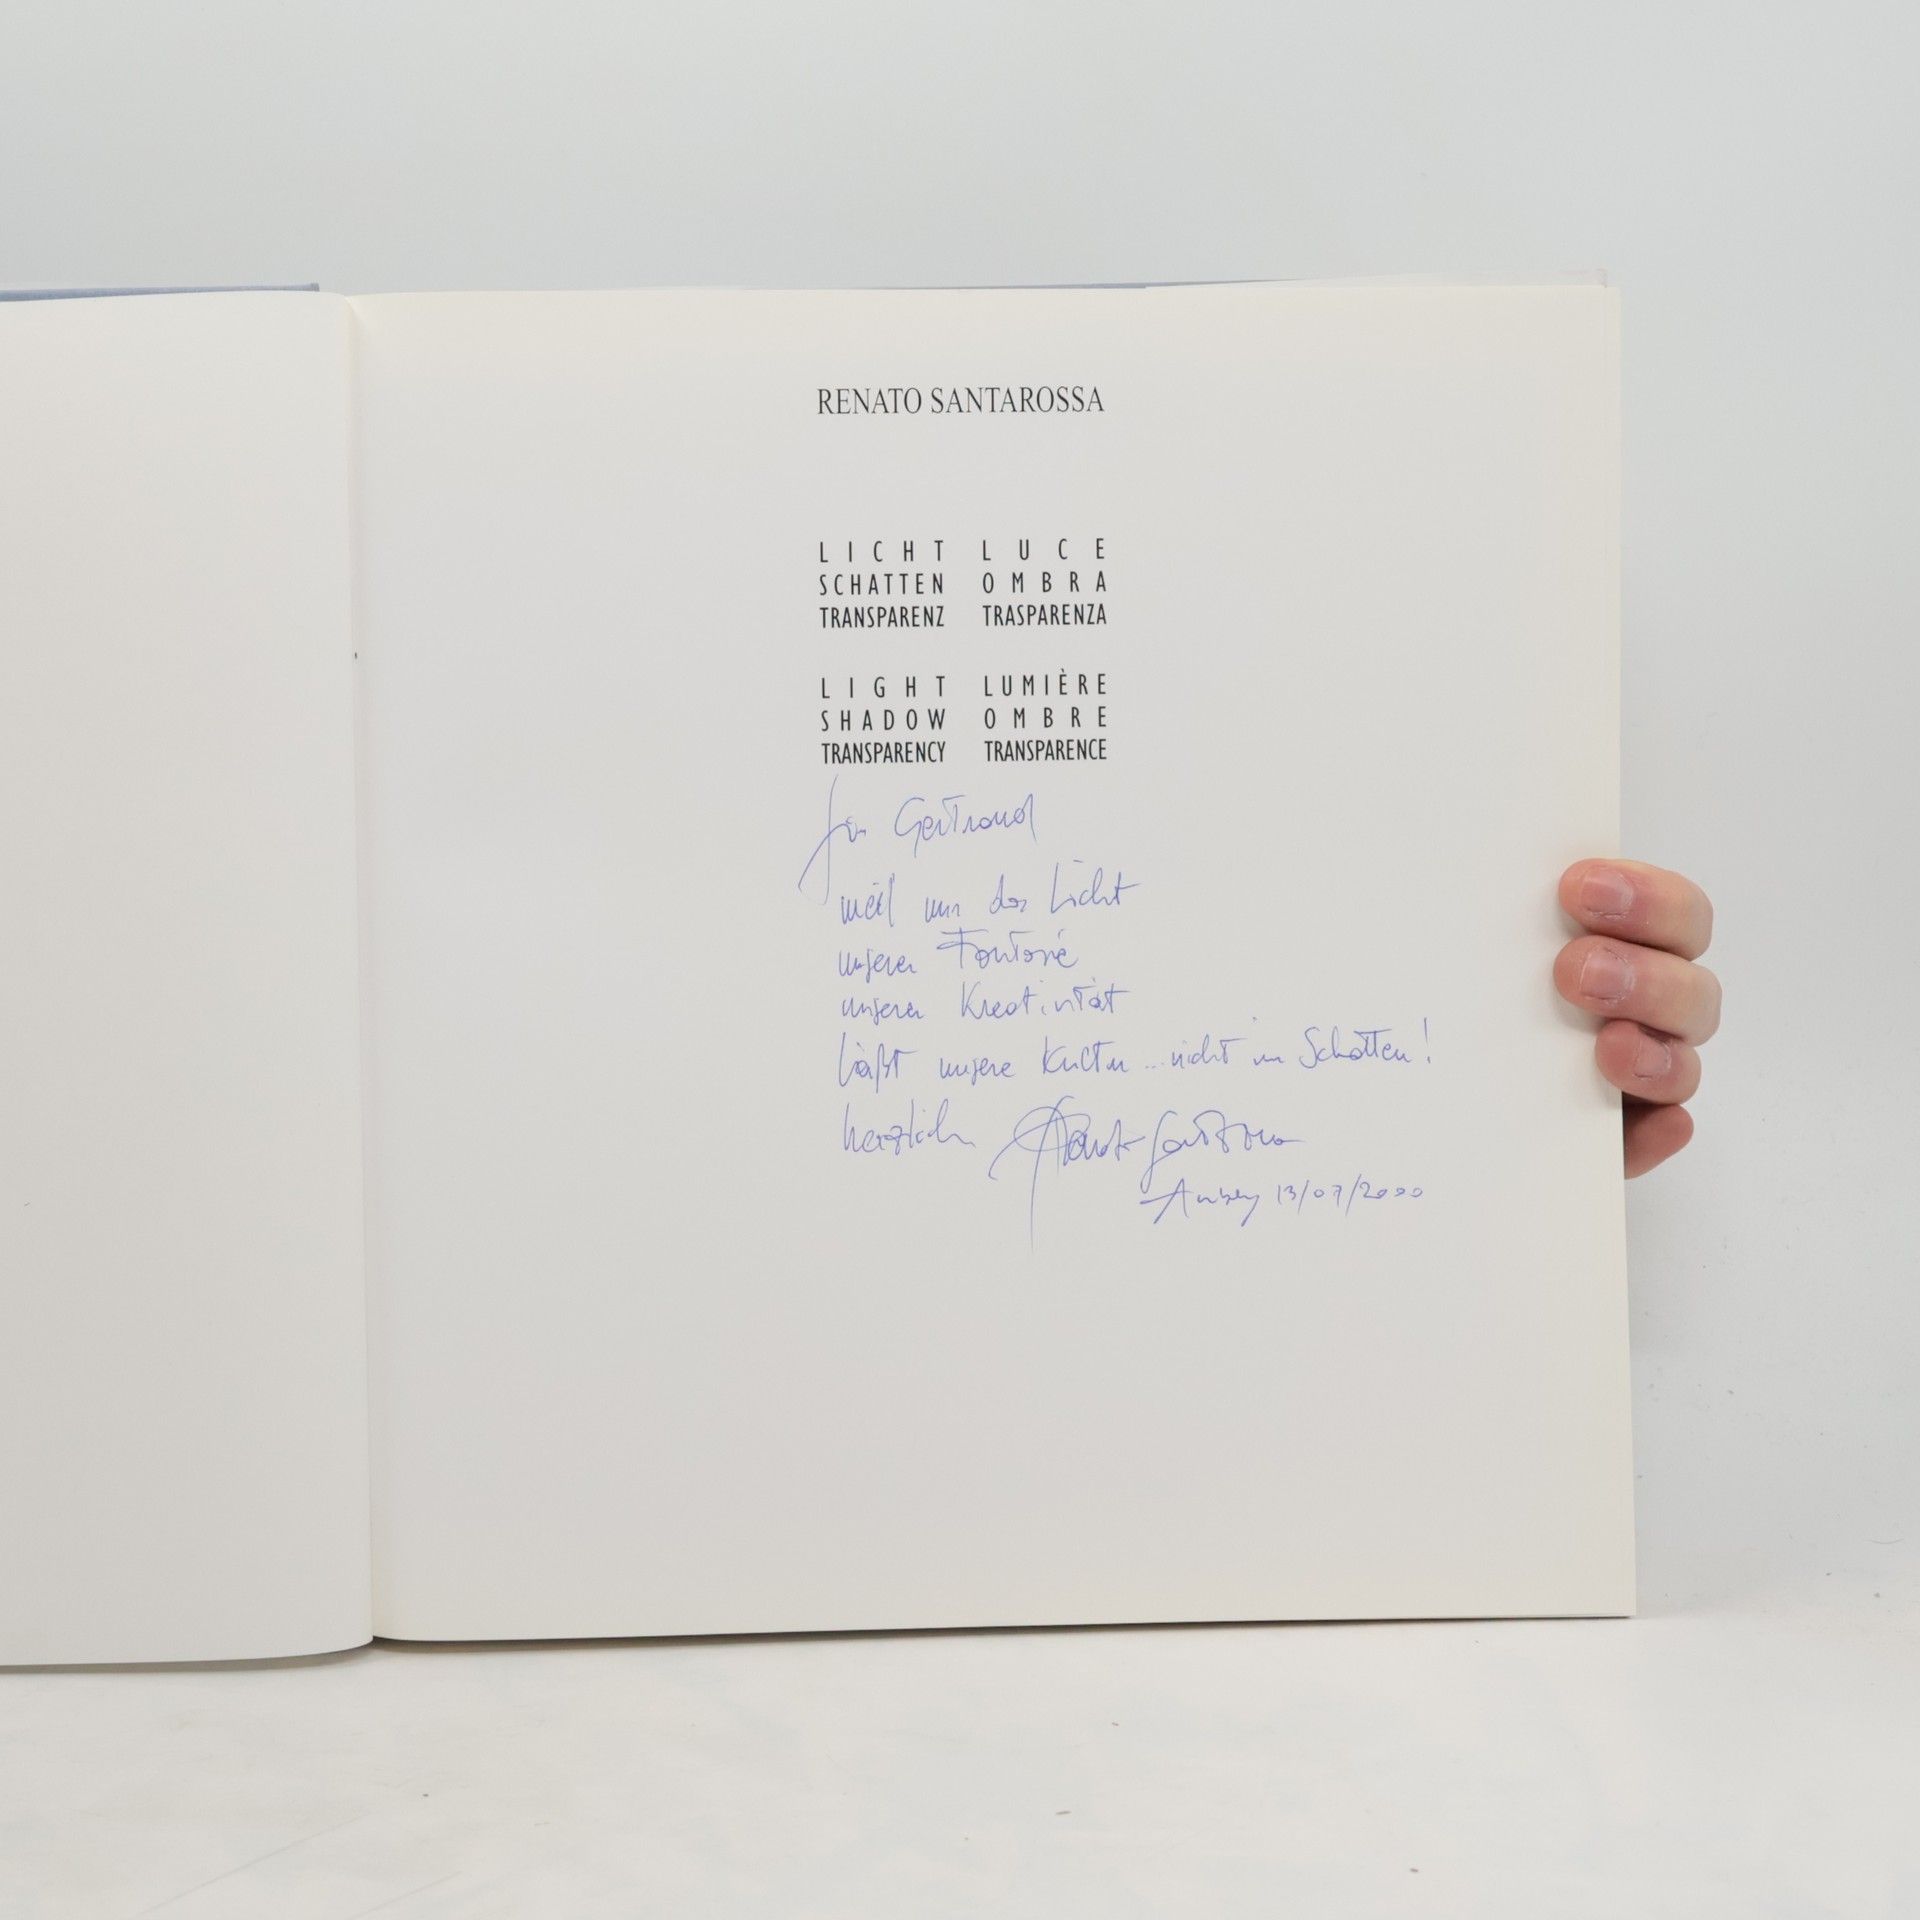 RENATO SANTAROSSA
LICHT
SCHATTEN
TRANSPARENZ
LUCE
OMBRA
TRASPARENZA
LIGHT
SHADOW
TRANSPARENCY
LUMIÈRE
OMBRE
TRANSPARENCE
für Gertraud
weil nur das Licht
unserer Fantasie
unserer Kreativität
läßt unsere Kultur ... nicht im Schatten!
herzlich Renato Santarossa
13/07/2000